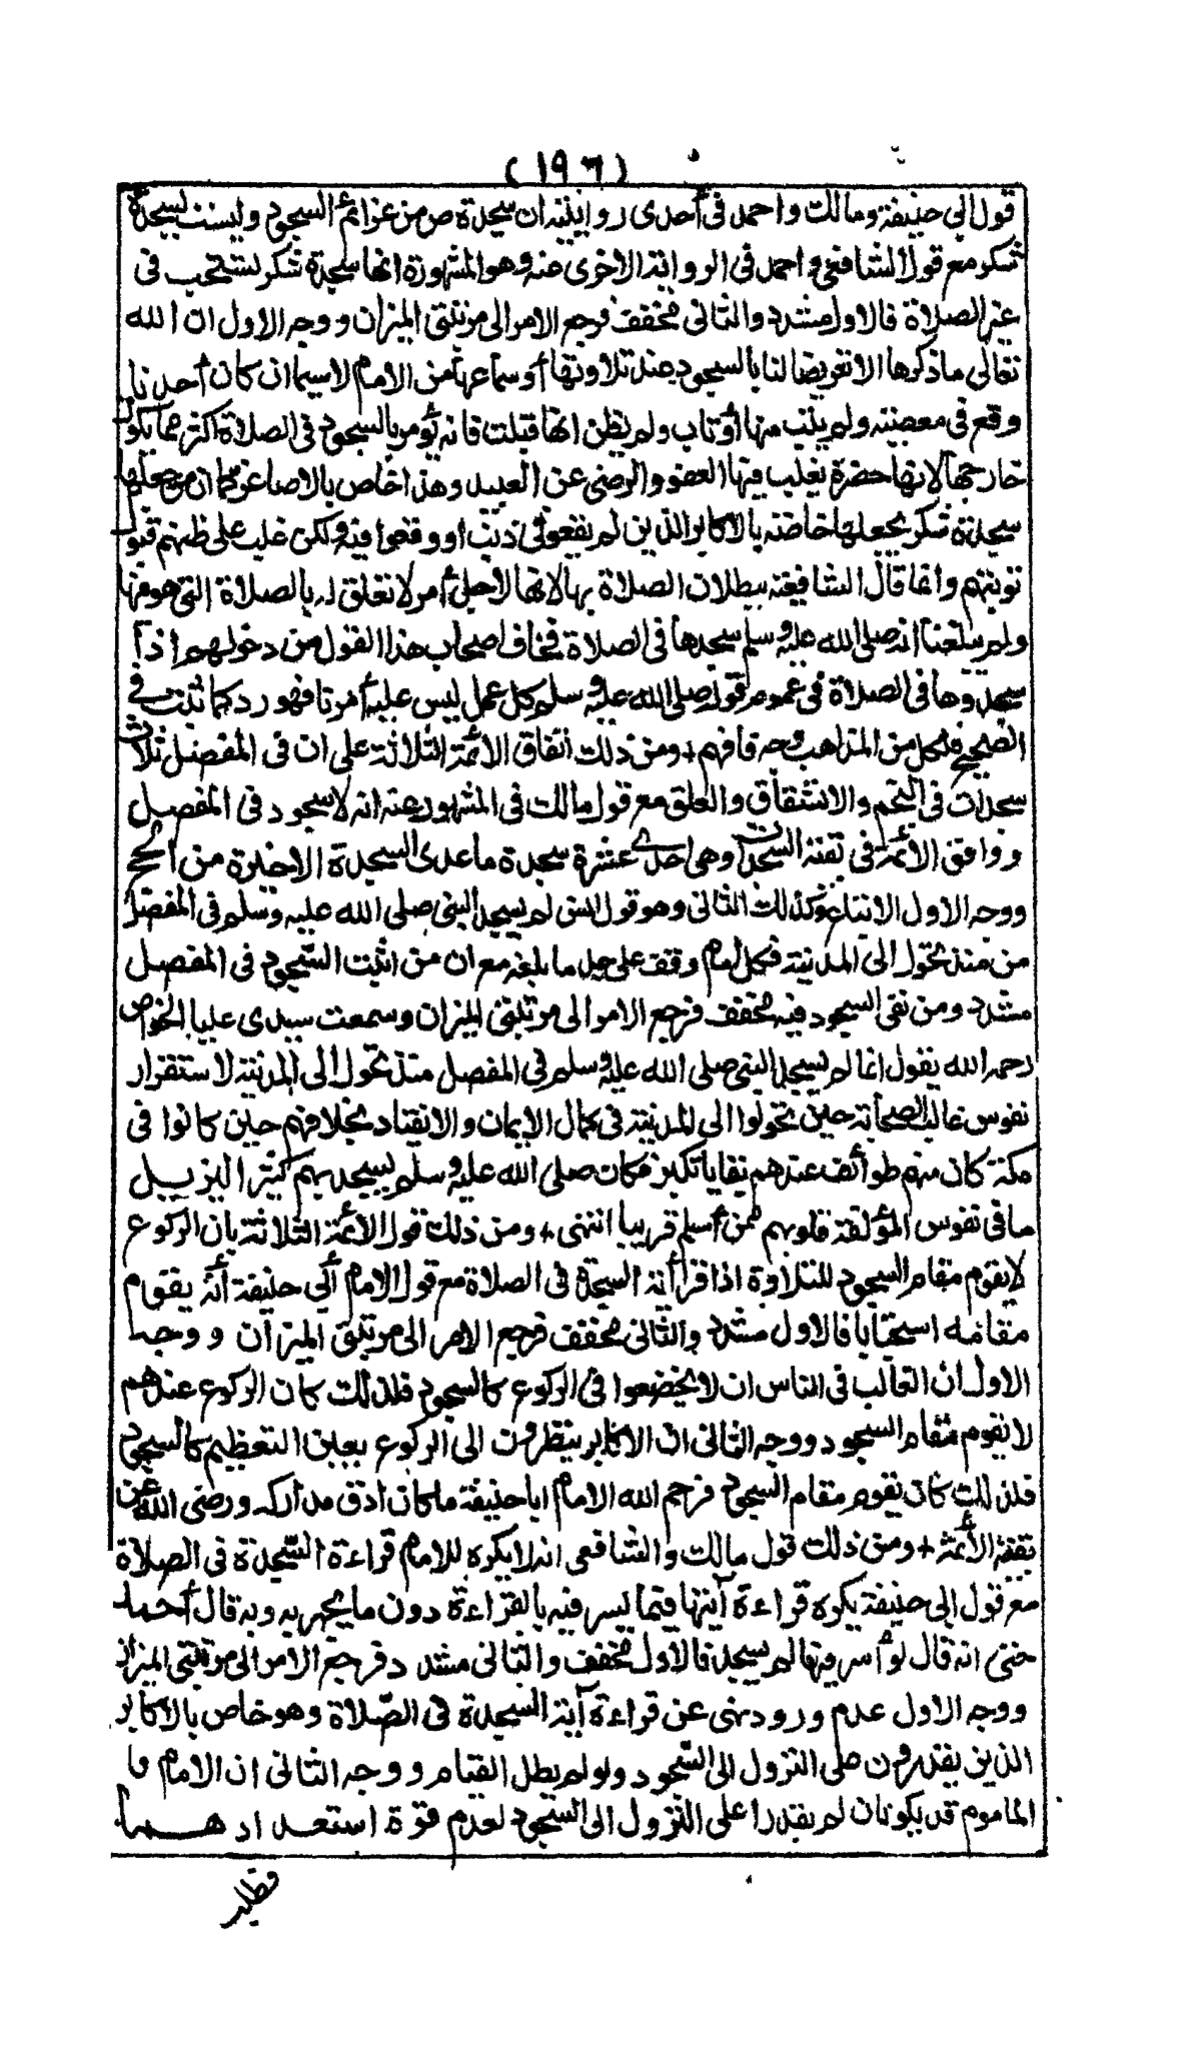 (١٩٦)
قول ابي حنيفة ومالك واحمد في أحدى روايتيه ان سجدة ص من عزائم السجود وليست بسجدة
شكر مع قول الشافعي واحمد في الرواية الاخرى عنه وهو المشهورة انها سجدة شكر تستحب في
غير الصلاة فالاول مشدد والثاني مخفف فرجع الامر الى مرتبتي الميزان ووجه الاول ان الله
تعالى ما ذكرها الا تعريضا لنا بالسجود عند تلاوتها أو سماعها من الامام لاسيما ان كان أحدنا
وقع في معصية ولم يتب منها أو تاب ولم يظن انها قبلت فانه يؤمر بالسجود في الصلاة اكثر مما يكون
خارجها لانها حضرة يغلب فيها العفو والرضى عن العبيد وهذا خاص بالاصاغر كما ان من جعلها
سجدة شكر يجعلها خاصة بالاكابر الذين لم يقعوا في ذنب أو وقعوا فيه ولكن غلب على ظنهم قبول
توبتهم وانما قال الشافعية ببطلان الصلاة بها لانها لاجل أمر لا تعلق له بالصلاة التي هو فيها
ولم يبلغنا انه صلى الله عليه وسلم سجدها في الصلاة فخاف اصحاب هذا القول من دخولهم اذا
سجدوها في الصلاة في عموم قوله صلى الله عليه وسلم كل عمل ليس عليه أمرنا فهو رد كما ثبت في
الصحيح فلكل من المذاهب وجه فافهم + ومن ذلك اتفاق الائمة الثلاثة على ان في المفصل ثلاث
سجدات في النجم والانشقاق والعلق مع قول مالك في المشهور عنه انه لا سجود في المفصل
ووافق الائمة في بقية السجدات وهي احدى عشرة سجدة ما عدى السجدة الاخيرة من الحج
ووجه الاول الاتباع وكذلك الثاني وهو قول انس لم يسجد النبي صلى الله عليه وسلم في المفصل
من منذ تحول الى المدينة فكل امام وقف على حد ما بلغه مع ان من اثبت السجود في المفصل
مشدد ومن نفى السجود فيه مخفف فرجع الامر الى مرتبتي الميزان وسمعت سيدى عليا الخواص
رحمه الله يقول انما لم يسجد النبي صلى الله عليه وسلم في المفصل منذ تحول الى المدينة لاستقرار
نفوس غالب الصحابة حين تحولوا الى المدينة في كمال الايمان والانقياد بخلافهم حين كانوا في
مكة كان منهم طوائف عندهم بقايا تكبر فكان صلى الله عليه وسلم يسجد بهم كثيرا ليزيل
ما في نفوس المؤلفة قلوبهم ممن أسلم قريبا انتهى + ومن ذلك قول الائمة الثلاثة بان الركوع
لا يقوم مقام السجود للتلاوة اذا قرأ أية السجدة في الصلاة مع قول الامام أبي حنيفة أنه يقوم
مقامه استحبابا فالاول مشدد والثاني مخفف فرجع الامر الى مرتبتي الميزان ووجه
الاول ان الغالب في الناس ان لا يخضعوا في الركوع كالسجود فلذلك كان الركوع عندهم
لا يقوم مقام السجود ووجه الثاني ان الاكابر ينظرون الى الركوع بعين التعظيم كالسجود
فلذلك كان يقوم مقام السجود فرحم الله الامام ابا حنيفة ما كان ادق مداركه ورضى الله عن
بقية الأئمة + ومن ذلك قول مالك والشافعي انه لا يكره للامام قراءة السجدة في الصلاة
مع قول ابي حنيفة يكره قراءة آيتها فيما يسر فيه بالقراءة دون ما يجهر به وبه قال أحمد
حتى انه قال لو أسر فيها لم يسجد فالاول مخفف والثاني مشدد فرجع الامر الى مرتبتي الميزان
ووجه الاول عدم ورود نهى عن قراءة آية السجدة في الصلاة وهو خاص بالاكابر
الذين يقدرون على النزول الى السجود ولو لم يطل القيام ووجه الثاني ان الامام وا
الماموم قد يكونان لم يقدرا على النزول الى السجود لعدم قوة استعدادهما